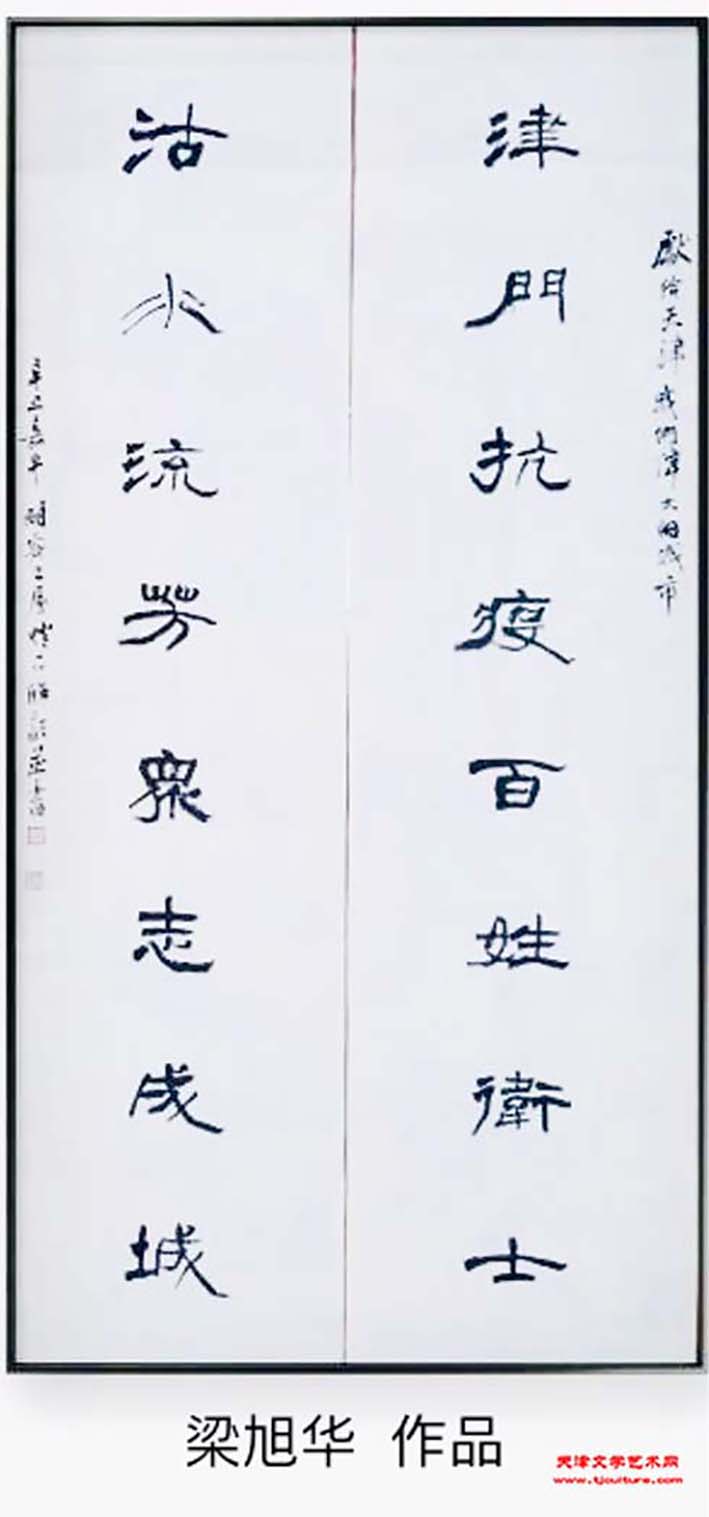 獻给天津我們偉大的城市
津門抗疫百姓衛士
沽水流芳眾志成城
辛丑嘉平
梁旭华 作品
天津文学艺术网
www.tjculture.com